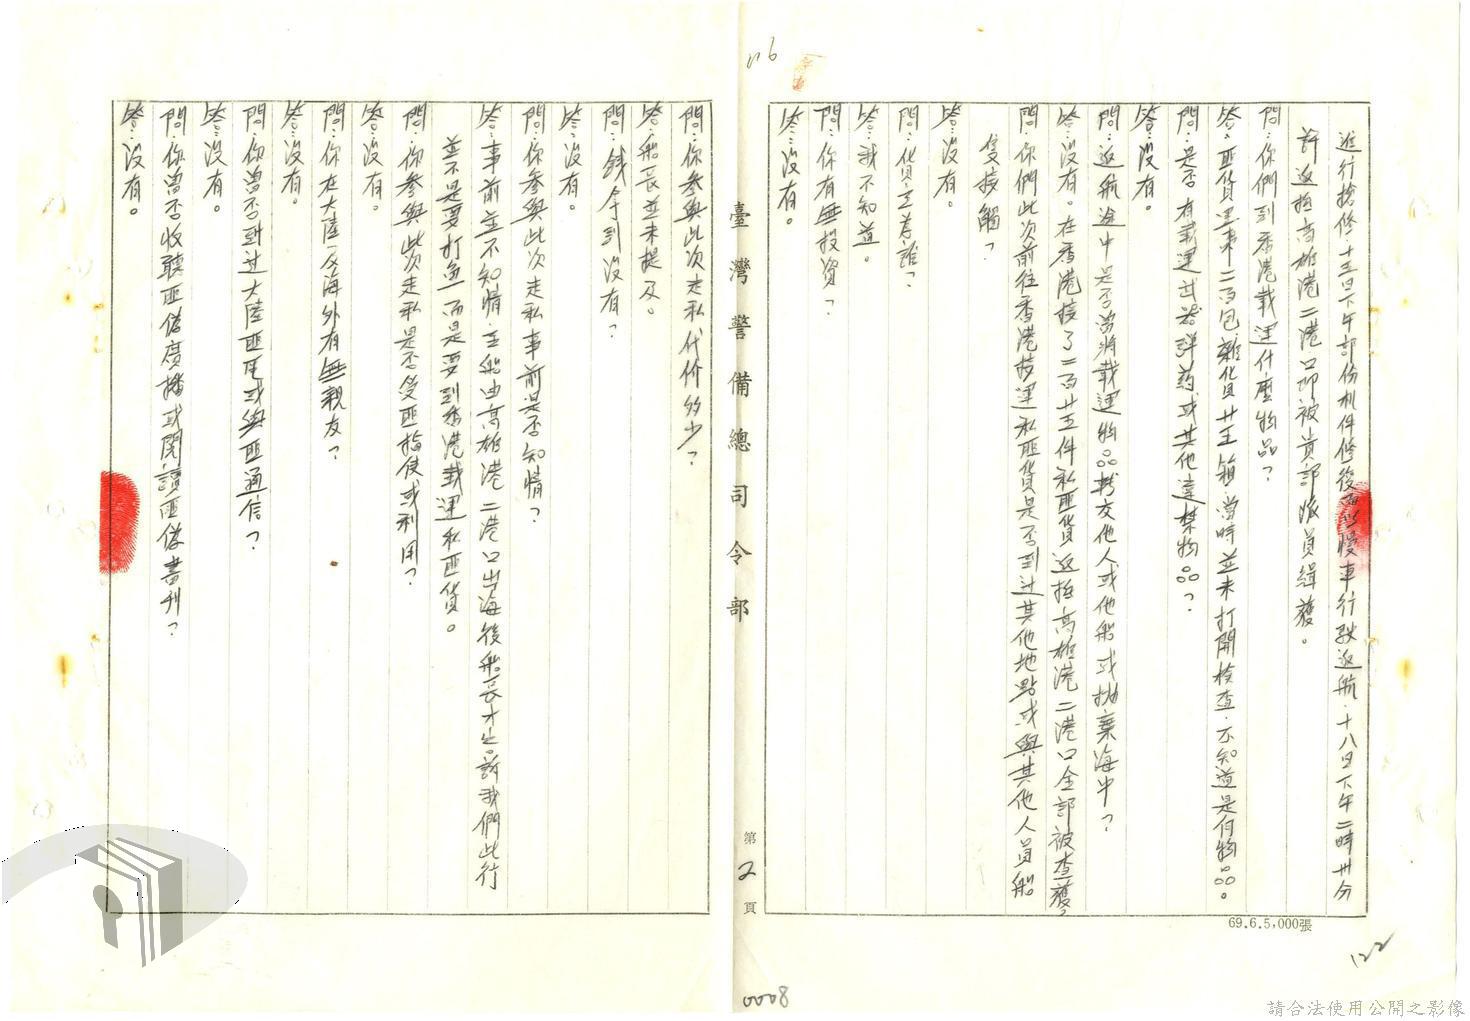 進行搶修，十三日下午部份机件修復而以慢車行駛返航，十八日下午二時卅分
許返抵高雄港二港口即被貴部派員緝獲。
問：你們到香港載運什麼物品？
答：匪貨運來二百包雜貨廿五箱，當時並未打開檢查，不知道是何物品。
問：是否有載運武器洋葯或其他違禁物品？
答：沒有。
問：返航途中是否曾將載運物品轉交他人或他船或拋棄海中？
答：沒有。在香港接了二百廿五件私匪貨返抵高雄港二港口全部被查獲。
問：你們此次前往香港接運私匪貨是否到过其他地點或與其他人員船
隻接觸？
答：沒有。
問：貨主為誰？
答：我不知道。
問：你有無投資？
答：沒有。
臺灣警備總司令部
第2頁
問：你參與此次走私代价多少？
答：船長並未提及。
問：錢拿到沒有？
答：沒有。
問：你參與此次走私事前是否知情？
答：事前並不知情，主船由高雄港二港口出海後船長才告訴我們此行
並不是要打魚而是要到香港載運私匪貨。
問：你參與此次走私是否受匪指使或利用？
答：沒有。
問：你在大陸及海外有無親友？
答：沒有。
問：你曾否到过大陸匪區或與匪通信？
答：沒有。
問：你曾否收聽匪偽廣播或閱讀匪偽書刊？
答：沒有。
69.6.5,000張
122
0008
請合法使用公開之影像